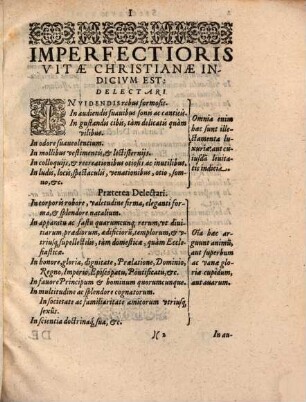 I
IMPERFECTIORIS
VITÆ CHRISTIANÆ IN-
DICIVM EST:
DELECTARI
IN VIDENDIS rebus formosis.
In audiendis suavibus sonis ac canticis.
In gustandis cibis, tàm delicatis quàm
vilibus.
In odore suaveolentium.
In mollibus vestimentis, & lectisternijs.
In colloquijs, & recreationibus otiosis ac inutilibus.
In ludis, iocis, spectaculis, venationibus, otio, som-
no, &c.
Omnia enim
hæc sunt ille-
ctamenta lu-
xuriæ, aut cu-
iusdã levita-
tis indicia.
Præterea Delectari.
In corporis robore, valetudine, forma, eleganti for-
ma, & splendore natalium.
In apparatu ac fastu quarumcunq; rerum, vt divi-
tiarum, prædiorum, ædificiorũ, templorum, & v-
triusq; supellectilis, tàm domesticæ, quàm Eccle-
siasticæ.
In honore, gloria, dignitate, Prælatione, Dominio,
Regno, Imperio, Episcopatu, Pontificatu, &c.
In favore Principum & hominum quorumcunque.
In multitudine ac splendore cognatorum.
In societate ac familiaritate amicorum vtriusq;
sexus.
In scientia doctrinaq́; sua, &c.
Oĩa hæc ar-
gunt animũ,
aut superbum
ac vanæ glo-
riæ cupidum,
aut avarum.
In au-